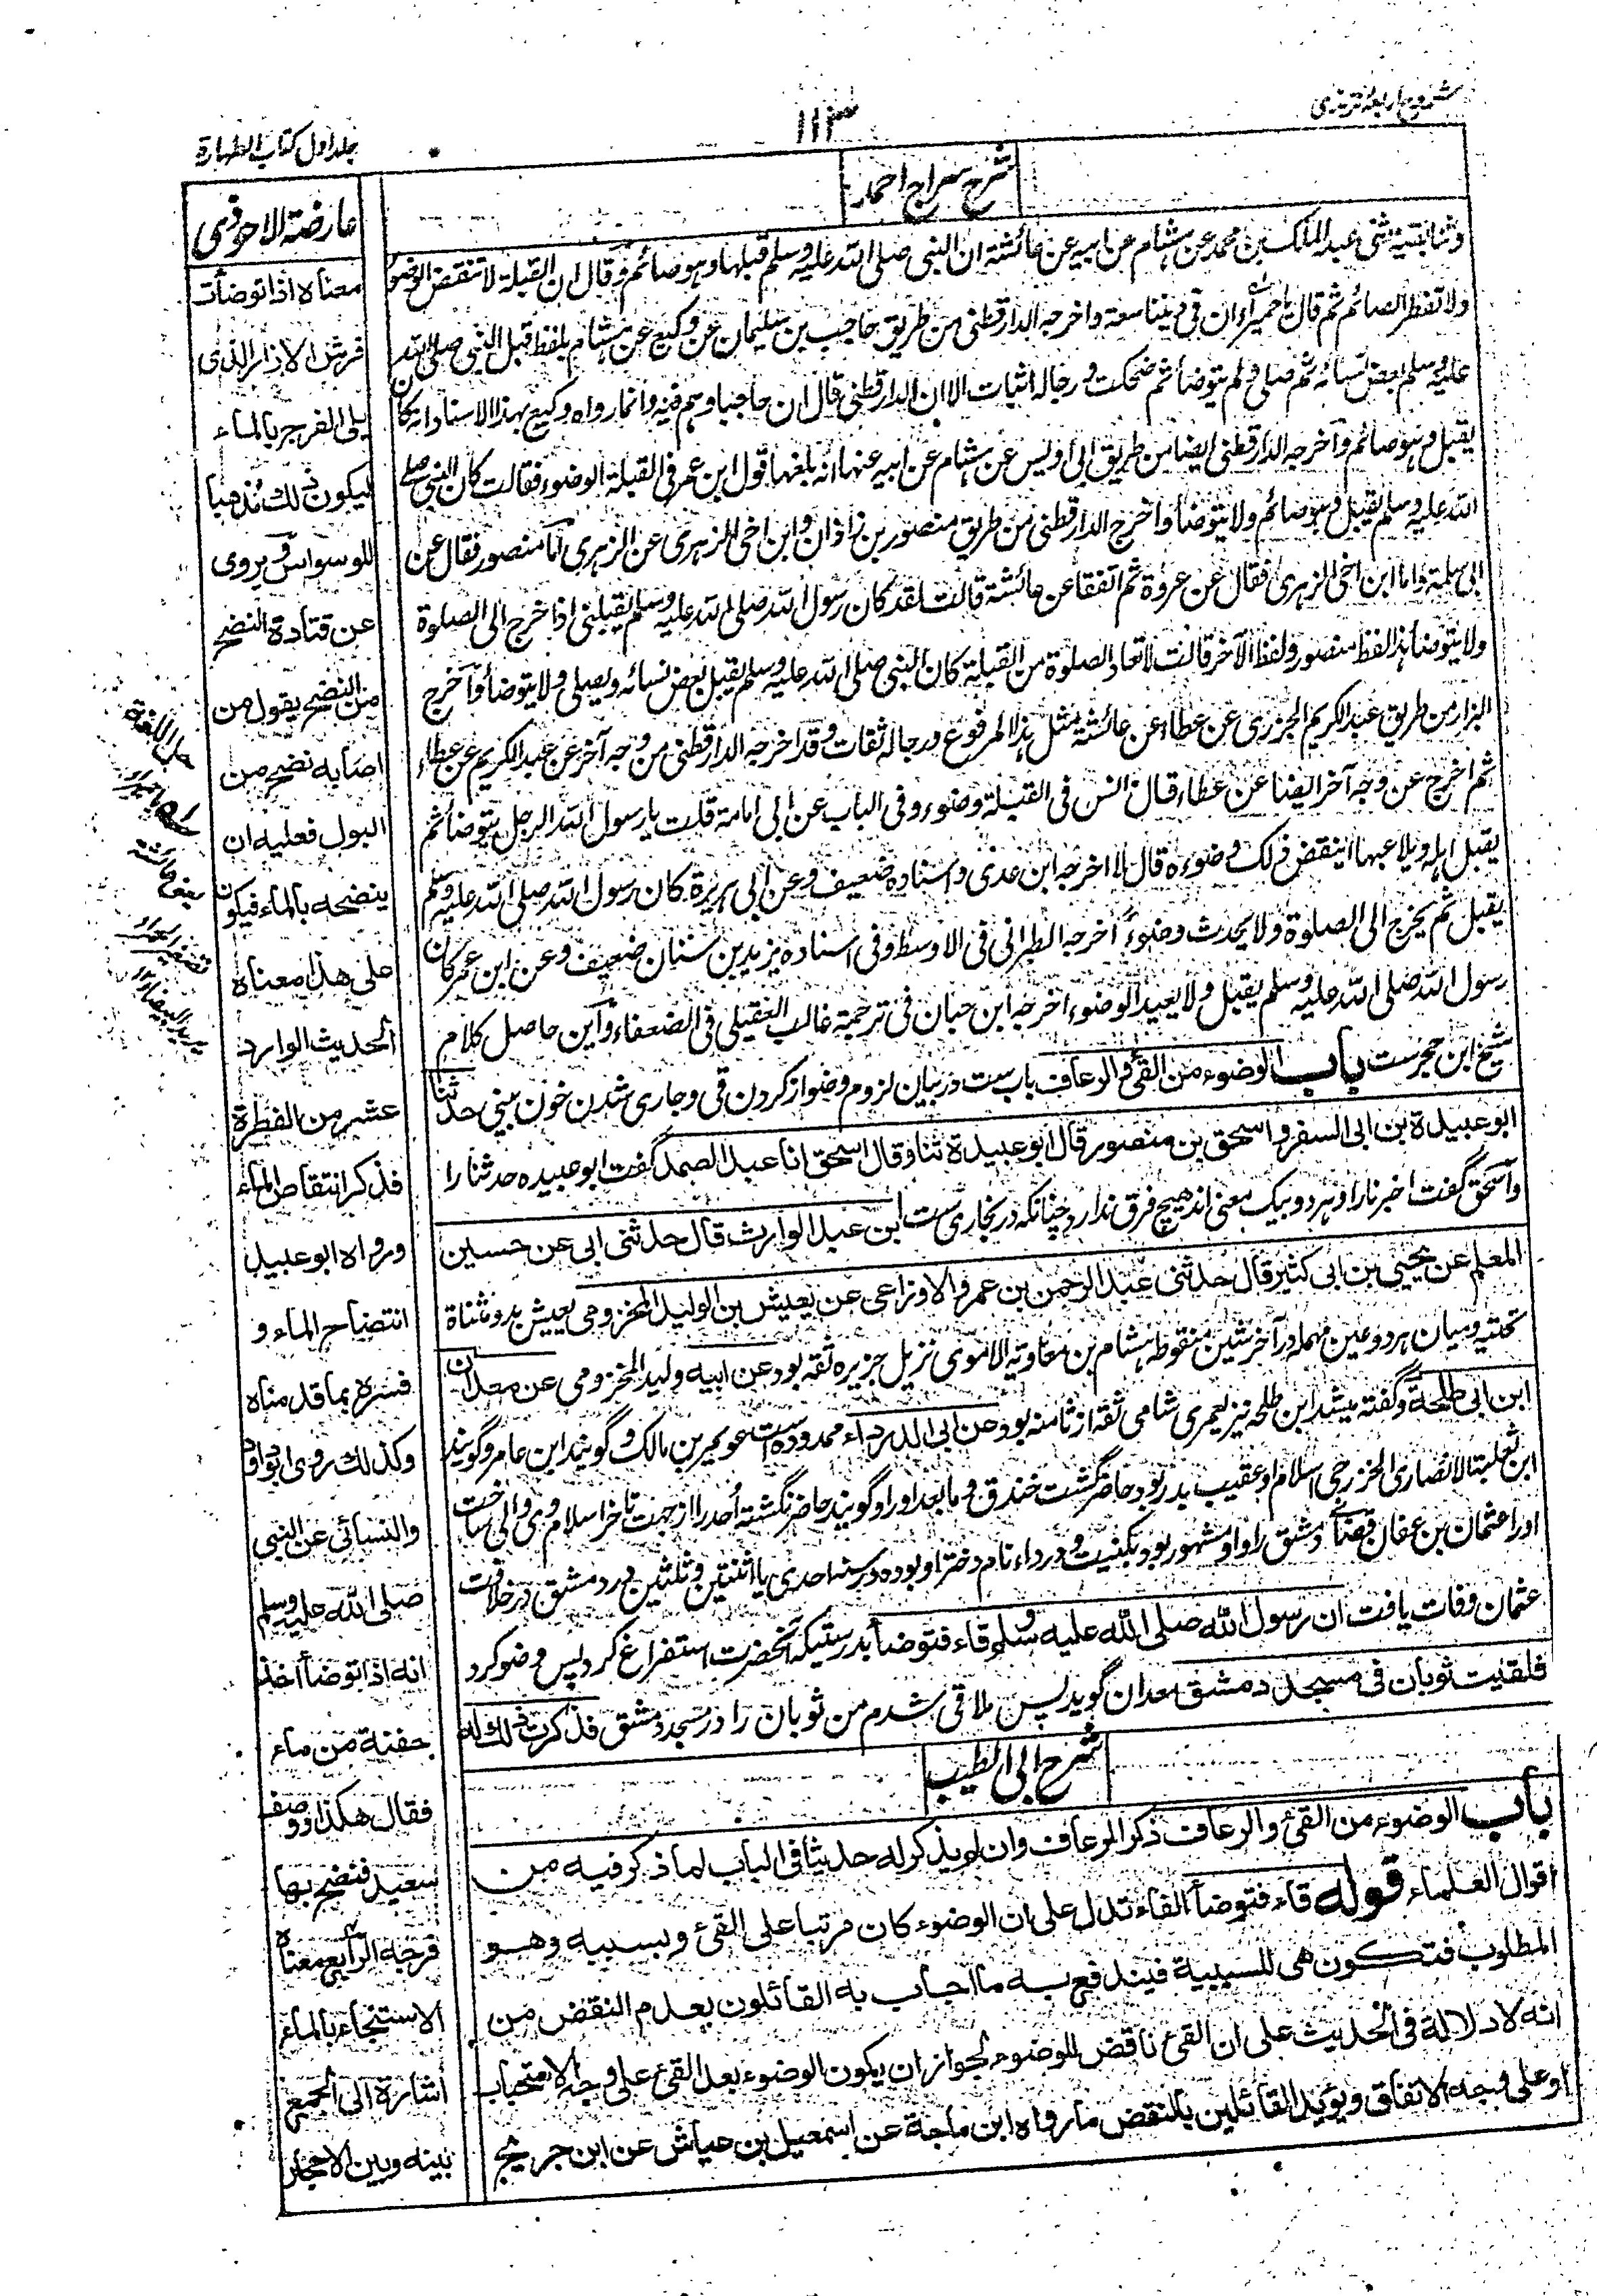 شروح اربعہ ترمذی
۱۱۳
جلد اول کتاب الطهارة
شرح سراج احمد
وثنا بقية ثنى عبد الملك بن محمد عن هشام عن ابيه عن عائشة ان النبي صلى الله عليه وسلم قبلها وهو صائم وقال ان القبلة لا تنقض الوضوء
ولا تفطر الصائم ثم قال يا حميراء ان في ديننا سعة واخرجه الدارقطني من طريق حاجب بن سليمان عن وكيع عن هشام بلفظ قبل النبي صلى الله
عليه وسلم بعض نسائه ثم صلى ولم يتوضأ ثم ضحكت ورجاله اثبات الا ان الدارقطني قال ان حاجبا وهم فيه وانما رواه وكيع بهذا الاسناد انه كان
يقبل وهو صائم وآخرجه الدارقطني ايضا من طريق ابي اويس عن هشام عن ابيه عنها انه بلغها قول ابن عمر في القبلة الوضوء فقالت كان النبي صلى
الله عليه وسلم يقبل وهو صائم ولا يتوضأ واخرج الدارقطني من طريق منصور بن زاذان وابن اخي الزهري عن الزهري اما منصور فقال عن
ابي سلمة واما ابن اخي الزهري فقال عن عروة ثم اتفقا عن عائشة قالت لقد كان رسول الله صلى الله عليه وسلم يقبلني اذا خرج الى الصلوة
ولا يتوضأ هذا لفظ منصور ولفظ الآخر قالت لا تعاد الصلوة من القبلة كان النبي صلى الله عليه وسلم يقبل بعض نسائه ويصلي ولا يتوضأ وآخرج
البزار من طريق عبد الكريم الجزري عن عطاء عن عائشة مثل هذا المرفوع ورجاله ثقات وقد اخرجه الدارقطني من وجه آخر عن عبد الكريم عن عطاء
ثم اخرج عن وجه آخر ايضا عن عطاء قال ليس في القبلة وضوء وفي الباب عن ابي امامة قلت يا رسول الله الرجل يتوضأ ثم
يقبل اهله ويلاعبها اينقض ذلك وضوءه قال لا اخرجه ابن عدي واسناده ضعيف وعن ابي هريرة كان رسول الله صلى الله عليه وسلم
يقبل ثم يخرج الى الصلوة ولا يحدث وضوءً اخرجه الطبراني في الاوسط وفي اسناده يزيد بن سنان ضعيف وعن ابن عمر كان
رسول الله صلى الله عليه وسلم يقبل ولا يعيد الوضوء اخرجه ابن حبان في ترجمة غالب العقيلي في الضعفاء وآين حاصل كلام
شيخ ابن حجرست باب الوضوء من القئ والرعاف باب ست در بيان لزوم وضو از كردن قى وجارى شدن خون بينى حدثنا
ابو عبيدة بن ابى السفر واسحق بن منصور قال ابو عبيدة ثنا وقال اسحق انا عبد الصمد گفت ابو عبيده حدثنا را
وآسحق گفت اخبرنا را وهر دو بيك معنى اند هيچ فرق ندارد چنانكه در بخارى ست ابن عبد الوارث قال حدثنى ابى عن حسين
المعلم عن يحيى بن ابى كثير قال حدثنى عبد الرحمن بن عمرو الاوزاعى عن يعيش بن الوليد المخزومى يعيش بدو مثناة
تحتيه وميان هر دو عين مهمله در آخر شين منقوطه هشام بن معاوية الاموى نزيل جزيره ثقه بود عن ابيه وليد المخزومى عن معدان
ابن ابى طلحة وگفته ميشد ابن طلحه نيز يعمرى شامى ثقه از ثامنه بود عن ابى الدرداء ممدوده است عويمر بن مالك وگويند ابن عامر وگويند
ابن ثعلبة الانصارى الخزرجى اسلام او عقيب بدر بود حاضر گشت خندق وما بعد او را وگويند حاضر نگشته اُحد را از جهت تاخر اسلام وى ووالى ساخت
او را عثمان بن عفان قضائے دمشق را واو مشهور بود بكنيت ودرداء نام دختر او بوده در سنه احدى يا اثنتين وثلثين در دمشق در خلافت
عثمان وفات يافت ان رسول الله صلى الله عليه وسلم قاء فتوضأ بدرستيكه آنحضرت استفراغ كرد پس وضو كرد
فلقيت ثوبان فى مسجد دمشق معدان گويد پس ملاقى شدم من ثوبان را در مسجد دمشق فذكرت ذلك له
شرح ابى الطيب
باب الوضوء من القئ والرعاف ذكر الرعاف وان لم يذكر له حديثا فى الباب لما ذكر فيه من
اقوال العلماء قوله قاء فتوضأ الفاء تدل على ان الوضوء كان مرتبا على القئ وبسببه وهو
المطلوب فتكون هى للسببية فيندفع به ما اجاب به القائلون بعدم النقض من
انه لا دلالة فى الحديث على ان القئ ناقض للوضوء لجواز ان يكون الوضوء بعد القئ على وجه الاستحباب
او على وجه الاتفاق ويؤيد القائلين بالنقض ما رواه ابن ماجة عن اسمعيل بن عياش عن ابن جريج
عارضة الاحوذى
معناه اذا توضأت
فرش الازار الذى
يلى الفرج بالماء
ليكون ذلك مُذهبا
للوسواس ويروى
عن قتادة النضح
من النضح يقول من
اصابه نضح من
البول فعليه ان
ينضحه بالماء فيكون
على هذا معناه
الحديث الوارد
عشر من الفطرة
فذكر انتقاص الماء
ورواه ابو عبيد
انتضاح الماء و
فسره بما قدمناه
وكذلك روى ابو داود
والنسائى عن النبى
صلى الله عليه وسلم
انه اذا توضأ اخذ
حفنة من ماء
فقال هكذا ووصف
سعيد فنضح بها
فرجه الرابع معناه
الاستنجاء بالماء
اشارة الى الجمع
بينه وبين الاحجار
حل اللغة
يا حميراء
يعنى عائشة
تصغير الحمراء
يريد البيضاء ١٢